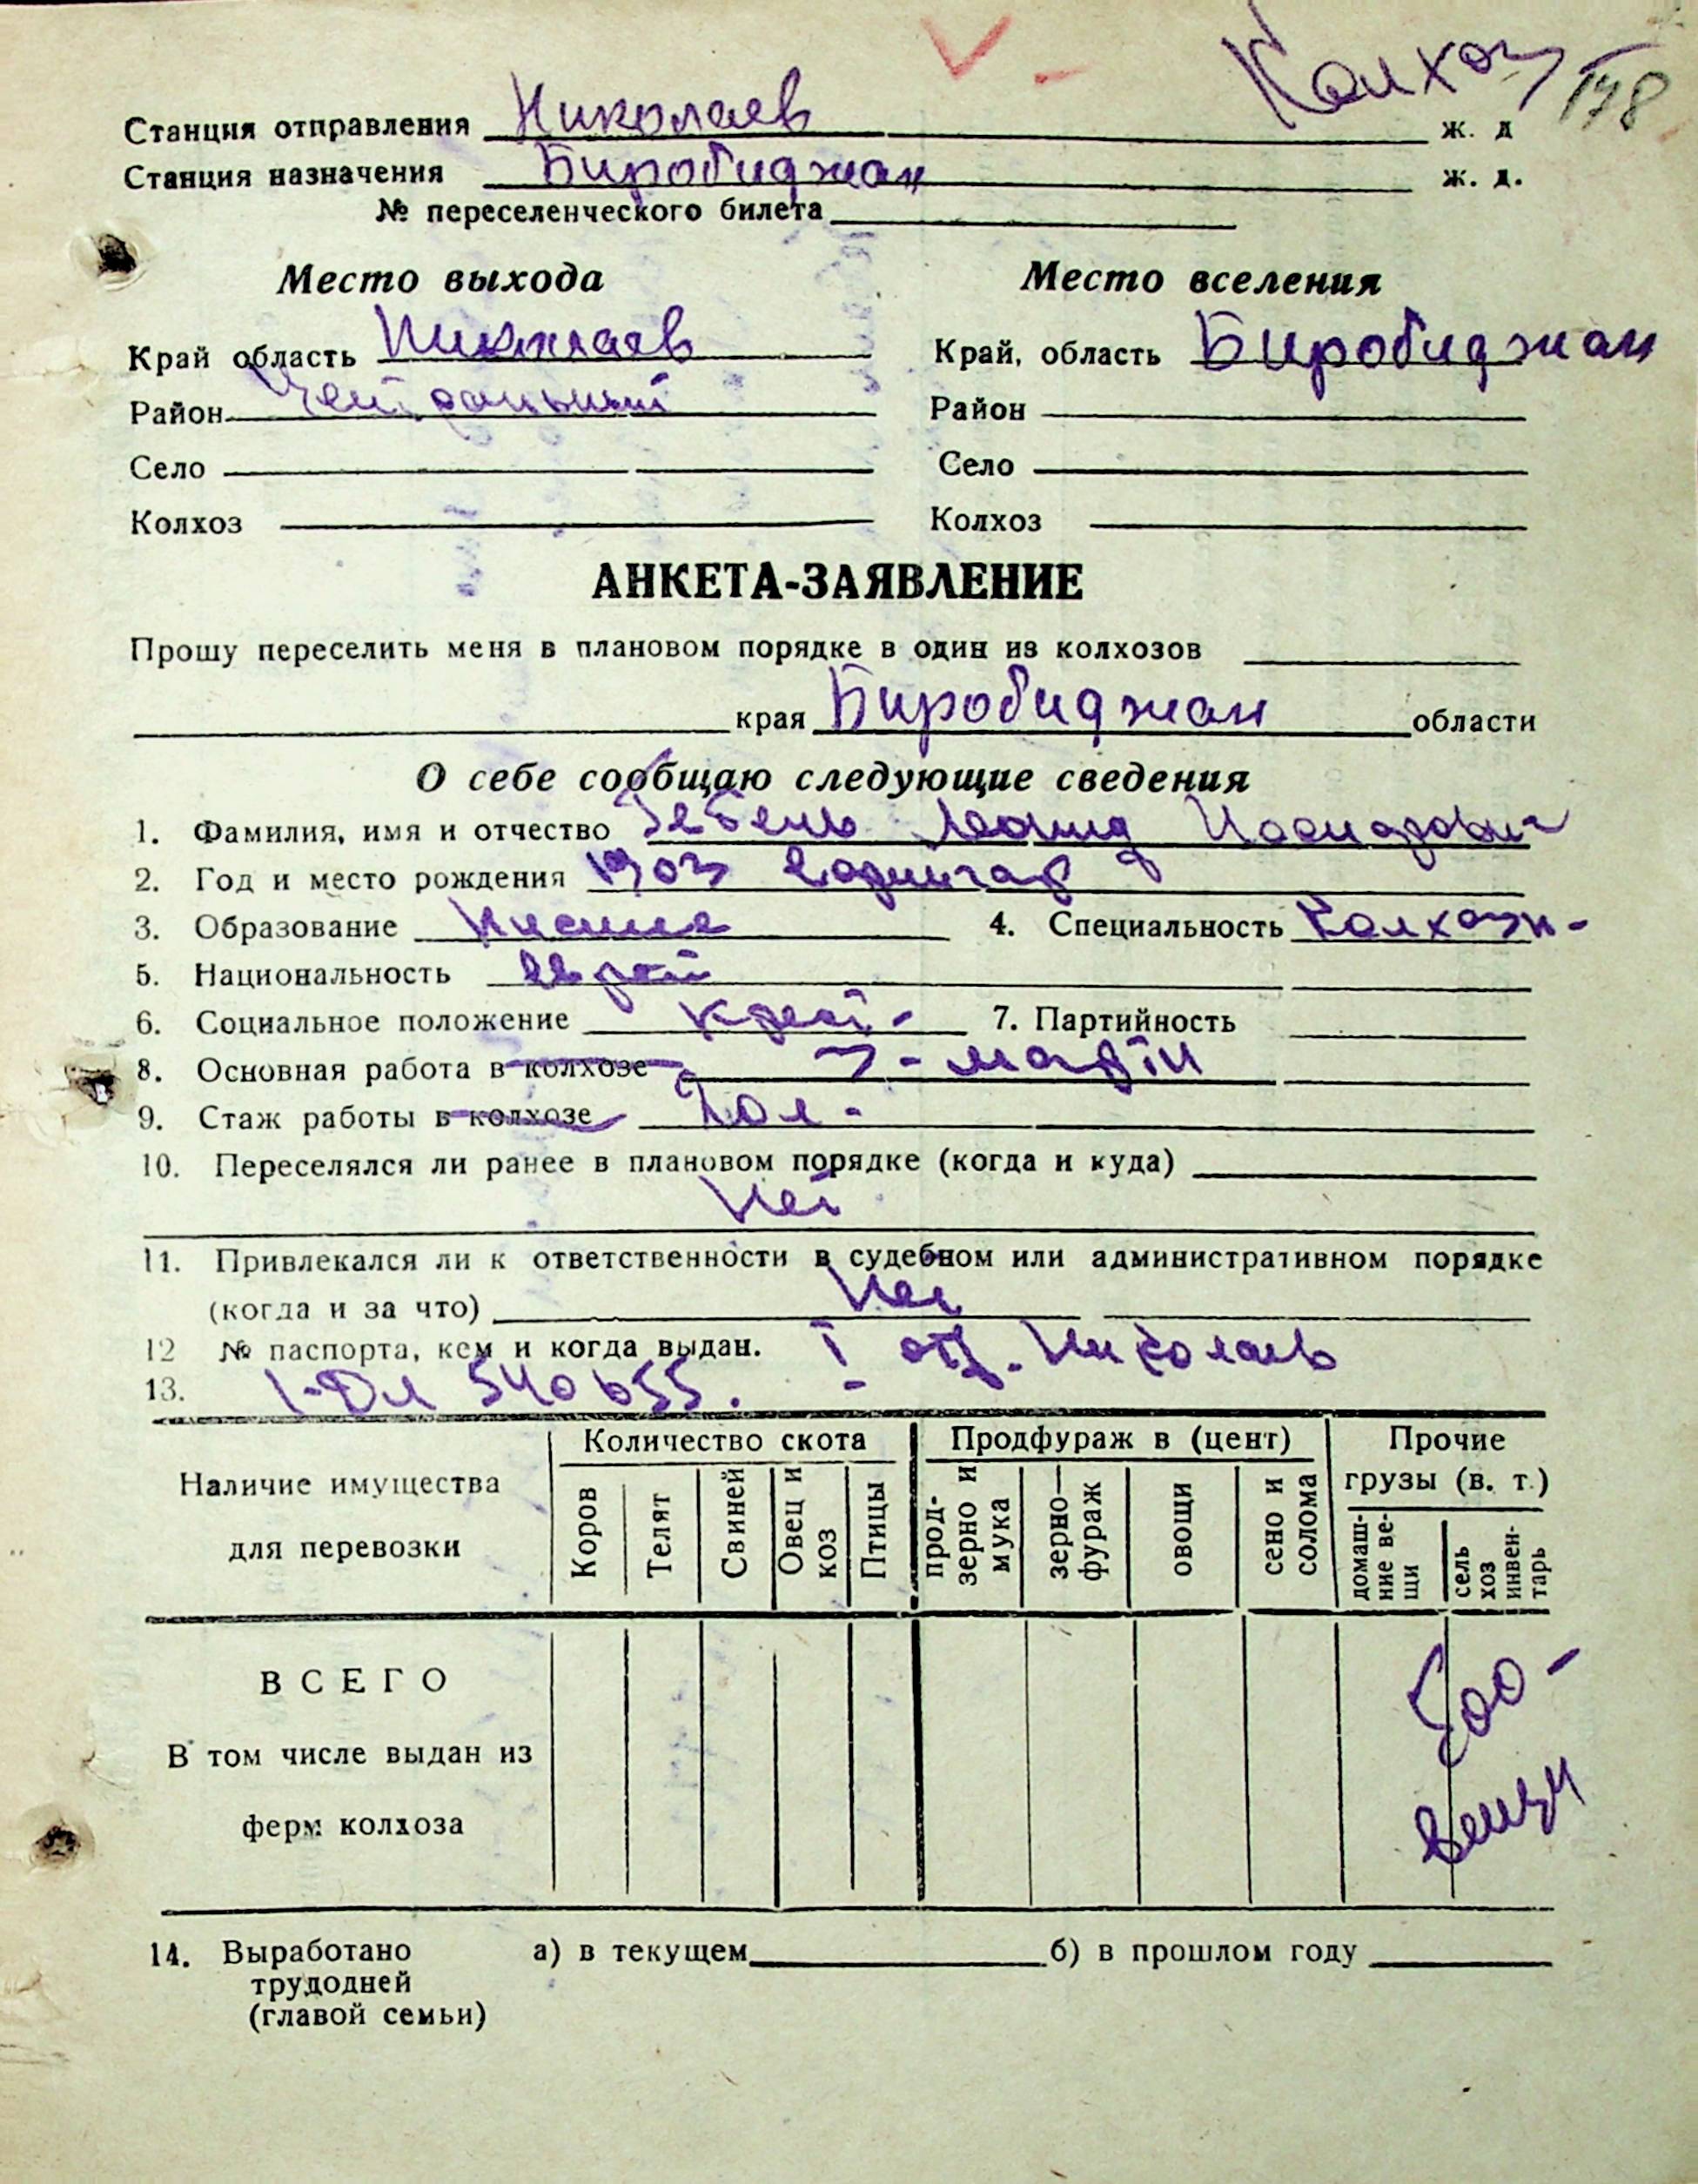 Колхоз 178
Станция отправления Николаев ж. д
Станция назначения Биробиджан ж. д.
№ переселенческого билета
Место выхода Место вселения
Край область Николаев Край, область Биробиджан
Район Район
Село Село
Колхоз Колхоз
АНКЕТА-ЗАЯВЛЕНИЕ
Прошу переселить меня в плановом порядке в один из колхозов
края Биробиджан области
О себе сообщаю следующие сведения
1. Фамилия, имя и отчество Леонид
2. Год и место рождения 1903
3. Образование Низшее 4. Специальность Колхозн-
5. Национальность еврей
6. Социальное положение Крест- 7. Партийность
8. Основная работа в колхозе
9. Стаж работы в колхозе
10. Переселялся ли ранее в плановом порядке (когда и куда)
Нет
11. Привлекался ли к ответственности в судебном или административном порядке
(когда и за что) Нет
12 № паспорта, кем и когда выдан. I отд. Николаев
13. 540655.
Наличие имущества для перевозки
Количество скота Продфураж в (цент) Прочие грузы (в. т.)
Коров Телят Свиней Овец и коз Птицы прод-зерно и мука зерно—фураж овощи сено и солома домаш-ние ве-щи сель хоз инвен-тарь
ВСЕГО 500-
В том числе выдан из вещи
ферм колхоза
14. Выработано а) в текущем б) в прошлом году
трудодней
(главой семьи)